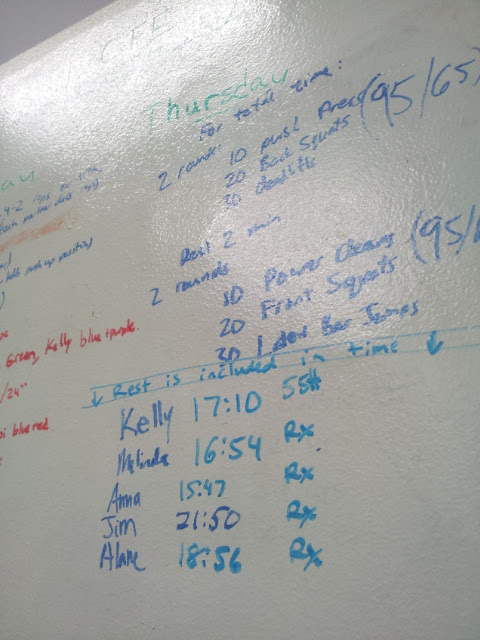 CFE
Thursday
For total time:
2 rounds:
10 push Press (95/65)
20 Back Squats
30 deadlifts
Rest 2 min
2 rounds
10 Power Cleans (95/
20 Front Squats
30 Lateral Bar Jumps
↓ Rest is included in time ↓
Kelly 17:10 55#
Melinda 16:54 Rx
Anna 15:47 Rx
Jim 21:50 Rx
Alane 18:56 Rx
ay
Green, Kelly blue+purple.
/24"
blue red